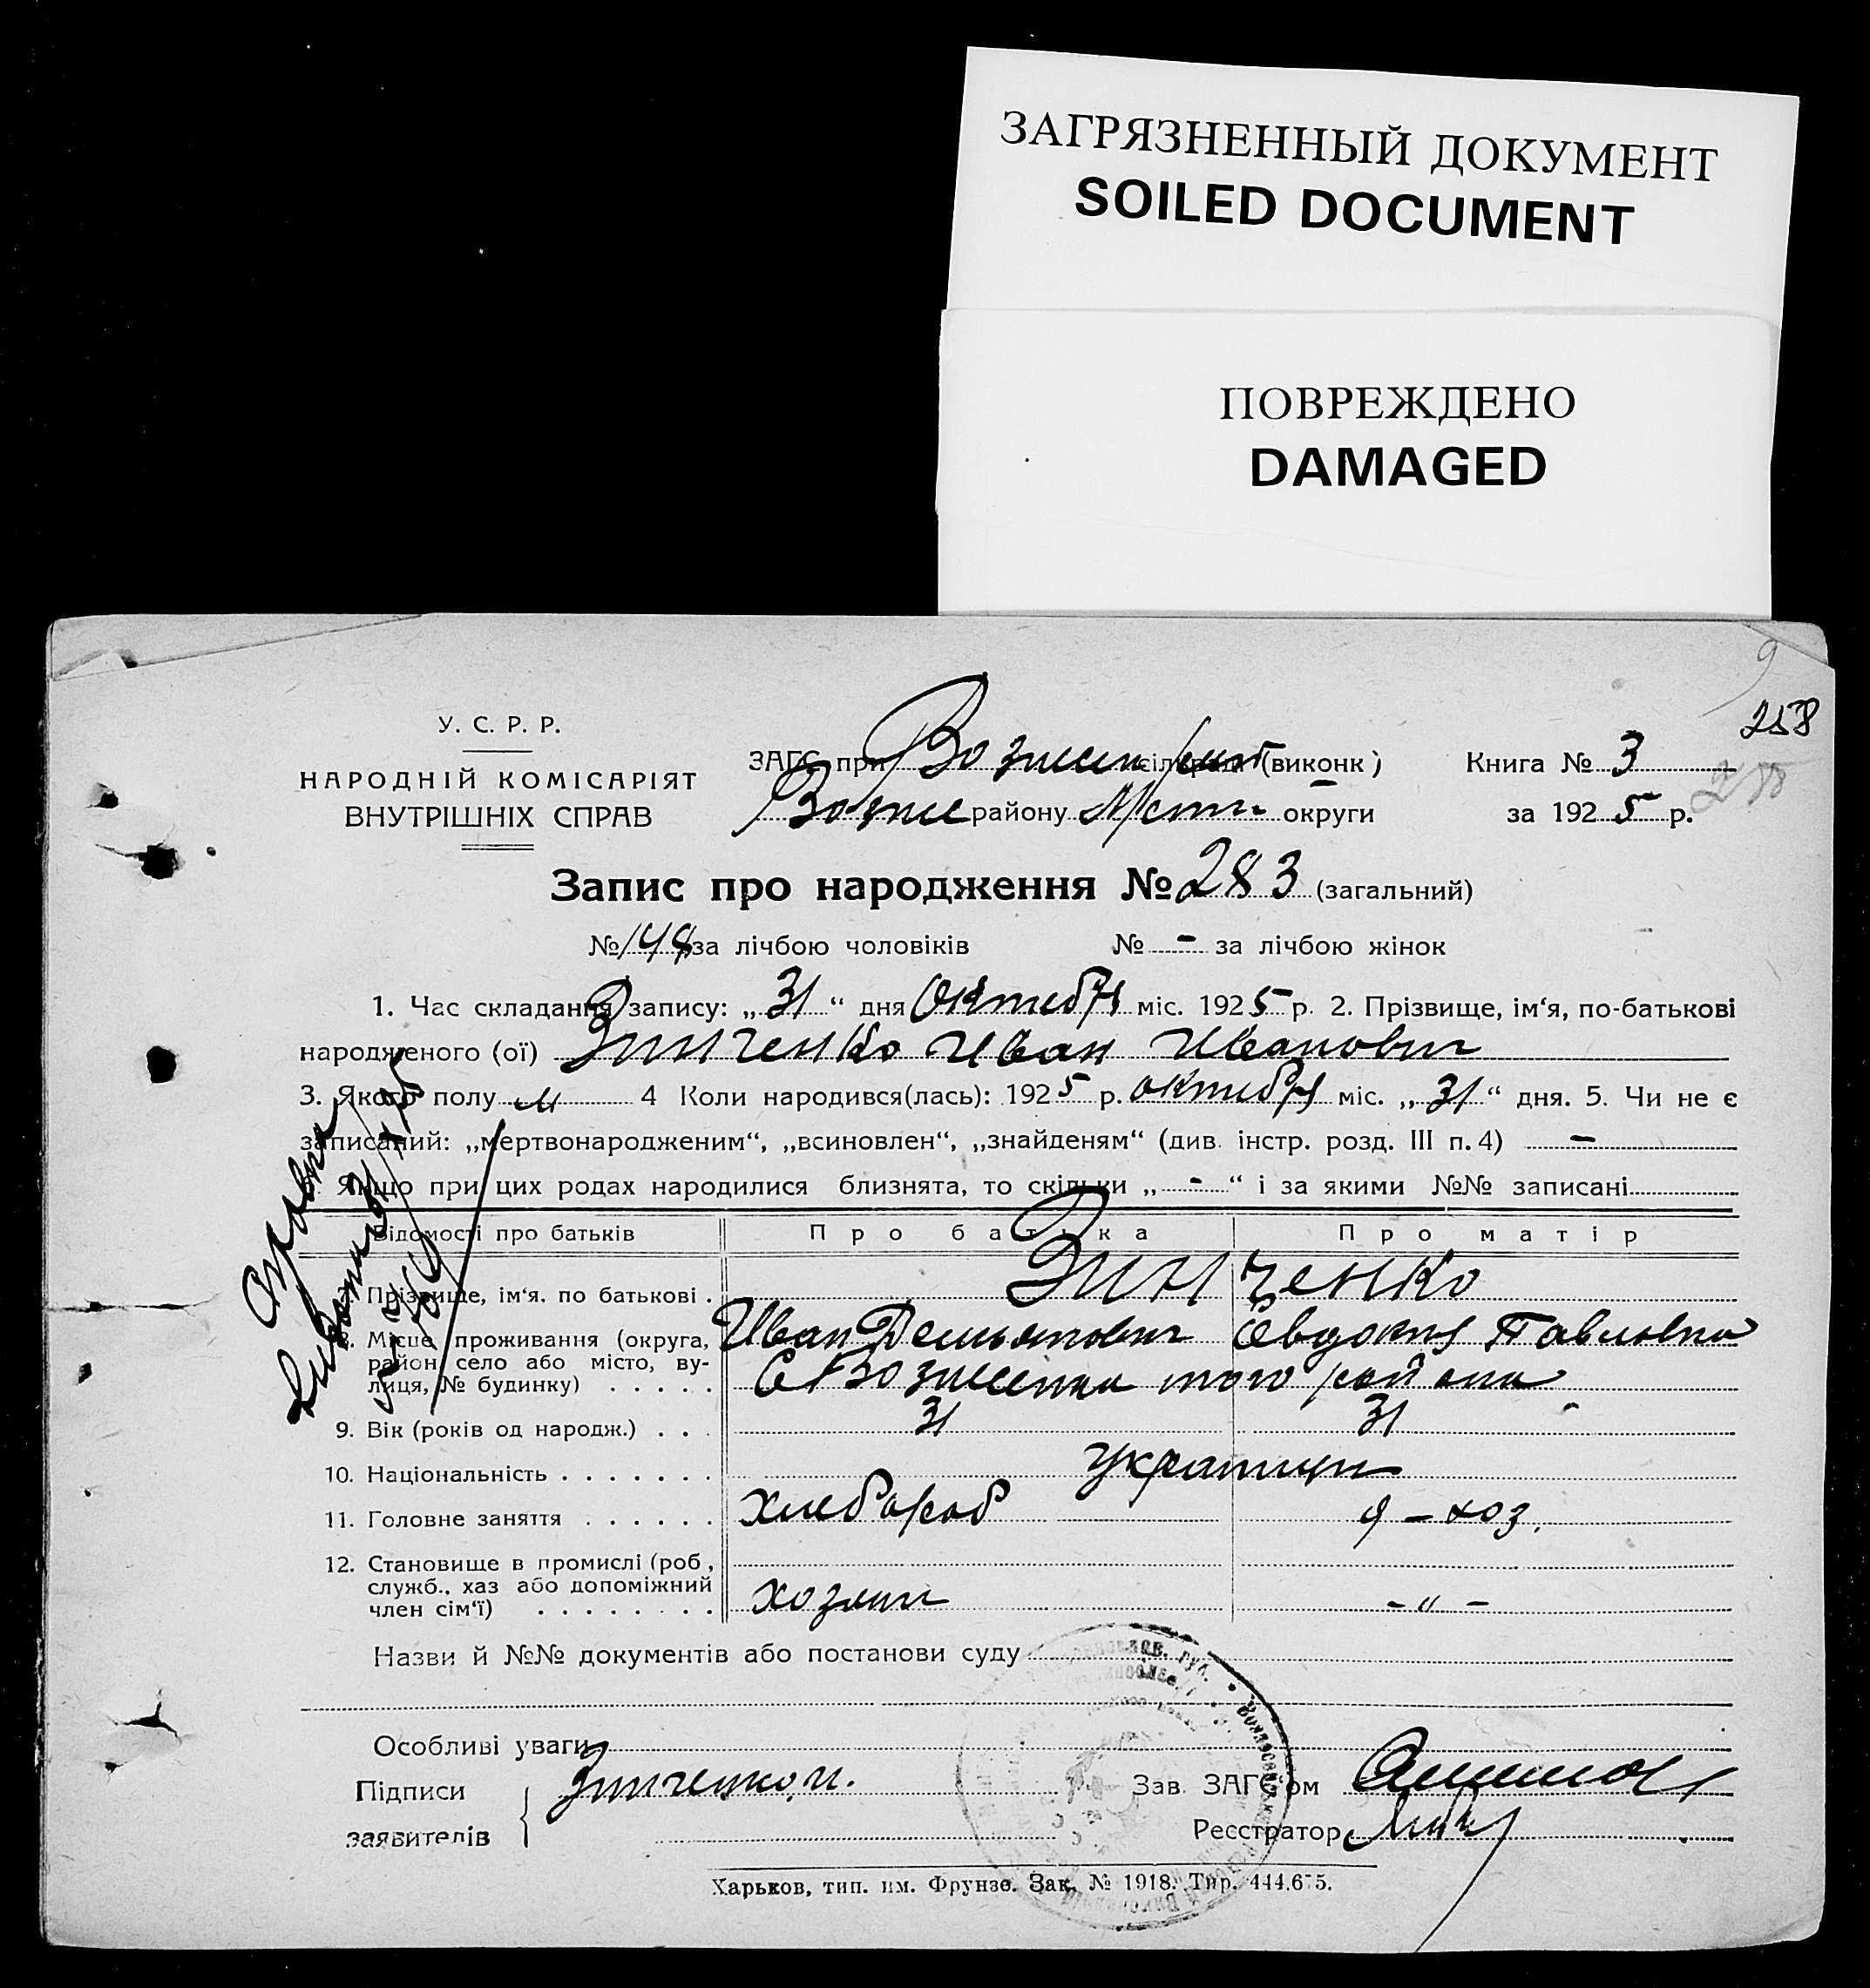 ЗАГРЯЗНЕННЫЙ ДОКУМЕНТ
SOILED DOCUMENT
ПОВРЕЖДЕНО
DAMAGED
258
У. С. Р. Р.
НАРОДНІЙ КОМІСАРІЯТ
ВНУТРІШНІХ СПРАВ
ЗАГС при сільраді (виконк) Книга № 3
району округи за 1925 р.
Запис про народження № 283 (загальний)
№ 148 за лічбою чоловіків № - за лічбою жінок
1. Час складання запису: „31“ дня Октября міс. 1925 р. 2. Прізвище, ім‘я, по-батькові
народженого (ої) Зинченко Иван Иванович
3. Якого полу м 4 Коли народився(лась): 1925 р. октября міс. „31“ дня. 5. Чи не є
записаний: „мертвонародженим“, „всиновлен“, „знайденям“ (див. інстр. розд. III п. 4) -
Якщо при цих родах народилися близнята, то скільки „-“ і за якими №№ записані
Відомості про батьків Про батька Про матір
Прізвище, ім‘я. по батькові . Зинченко
Иван Демьянович Евдокия Павловна
8. Місце проживання (округа,
район, село або місто, ву-
лиця, № будинку) . . . . . С Вознесенка того района
9. Вік (років од народж.) . . . 31 31
10. Національність . . . . . . . украинцы
11. Головне заняття . . . . . . хлебороб д-хоз.
12. Становище в промислі (роб,
служб., хаз або допоміжний
член сім‘ї) . . . . . . . . хозяин - „ -
Назви й №№ документів або постанови суду
Особливі уваги
Підписи
заявителів
Зинченко и.
Зав. ЗАГС‘ом
Реєстратор
Харьков, тип. им. Фрунзе. Зак. № 1918. Тир. 444.675.